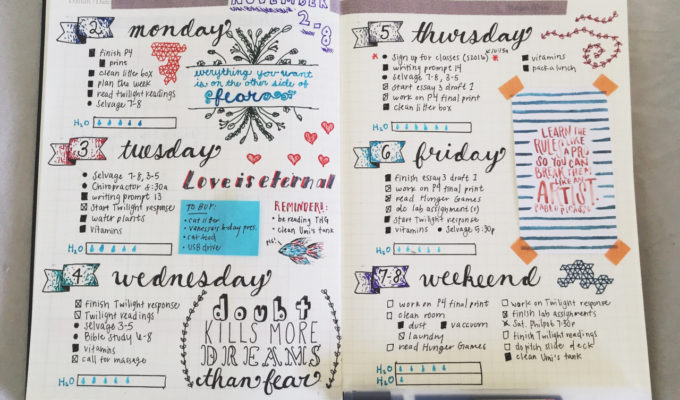 NOVEMBER
2-8
2 monday
finish P4
print
clean litter box
plan the week
read twilight readings
Selvage 7-8
H2O
everything you want
is on the other side of
fear
3 tuesday
Selvage 7-8, 3-5
Chiropractor 6:30a
writing prompt 13
Start Twilight response
water plants
vitamins
H2O
Love is eternal
TO BUY:
cat litter
vanessa's b-day pres.
cat food
USB drive
REMINDERS:
be reading THG
clean Umi's tank
4 wednesday
finish Twilight response
Twilight readings
Selvage 3-5
Bible Study 6-8
vitamins
call for massage
H2O
doubt
KILLS MORE
DREAMS
than fear
5 thursday
Sign up for classes (S2016)
writing prompt 14
selvage 7-8, 3-5
start essay 3 draft 1
work on P4 final print
clean litter box
vitamins
pack a lunch
H2O
LEARN THE
RULES LIKE A PRO
SO YOU CAN
BREAK THEM
LIKE AN
ARTIST.
PABLO PICASSO
6 friday
finish essay 3 draft 2
work on P4 final print
read Hunger Games
do lab assignment(s)
start Twilight response
vitamins
Selvage 5:30p
H2O
7-8 weekend
work on P4 final print
clean room
dust
vacuum
laundry
read Hunger Games
work on Twilight response
finish lab assignments
Sat. Philpot 7:30p
finish Twilight readings
do pitch slide deck
clean Umi's tank
H2O
H2O